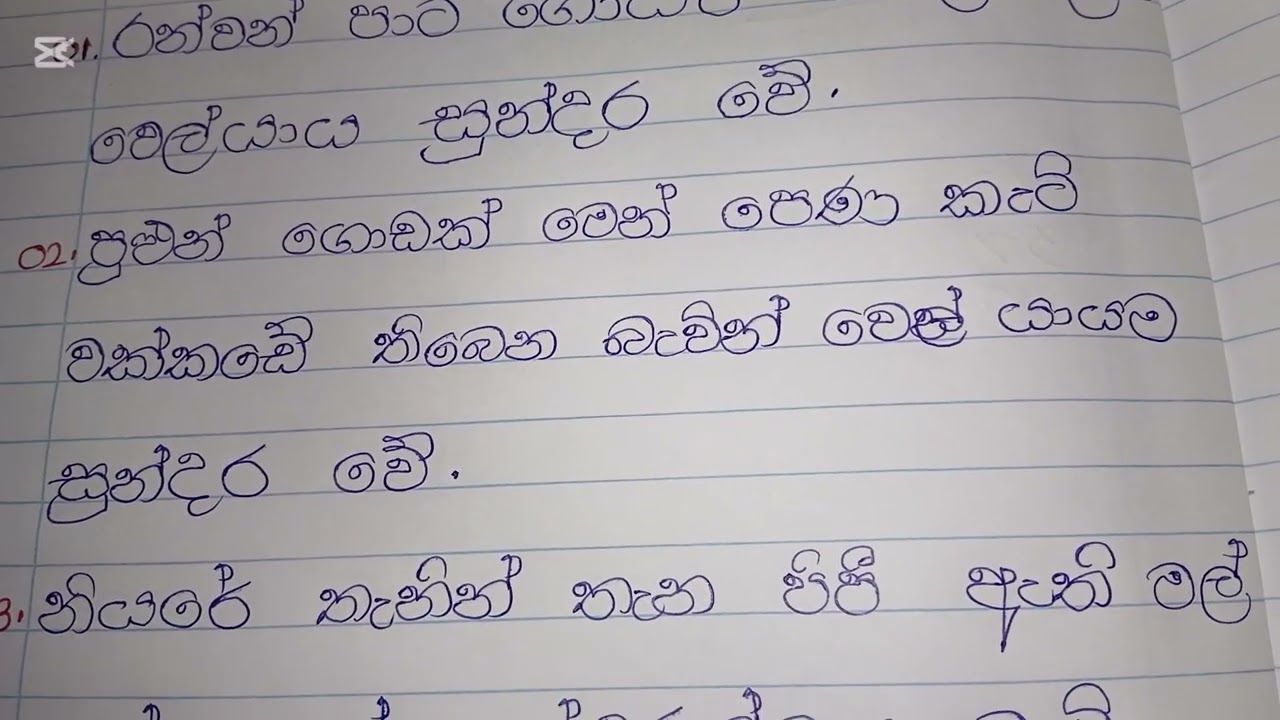 01. රන්වන් පාට ගොයම්
වෙල්යාය සුන්දර වේ.
02. පුළුන් ගොඩක් මෙන් පෙණ කැටි
වක්කඩේ තිබෙන බැවින් වෙල් යායම
සුන්දර වේ.
3. නියරේ තැනින් තැන පිපී ඇති මල්